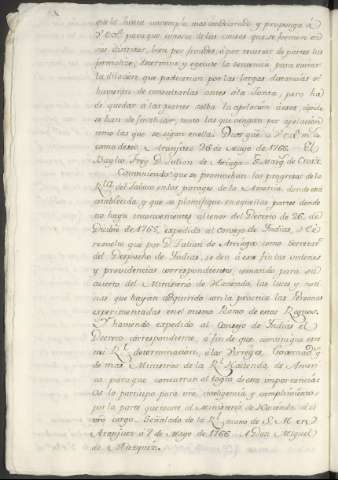 que le fuere un exemplo mas moderado y proponga á
V. Exª. para que conozca de las causas que se formen en
sus distritos, bien por fraudes, ó por recurso de partes las
formalice, determine y execute la sentencia para evitar
la dilacion que padecerian por las largas distancias si
huvieran de consultarlas antes á la Junta, pero ha
de quedar a las partes salva la apelacion á esta, donde
se han de substanciar, tanto las que vengan por apelacion
como las que se sigan en ella. Dios gue. á V. Exª. m. a.
como deseo Aranjuez 26 de Mayo de 1766. El
Baylio Frey D. Julian de Arriaga. S. Marq. de Croix.
Conviniendo que se promuevan los progresos de la
Rta. del Tabaco en los parages de la America, donde está
establecida, y que se plantifique en aquellas partes donde
no haya inconvenientes al tenor del Decreto de 26. de
de 1765. expedido al Consejo de Indias, é He
resuelto que por D. Julian de Arriaga como Secretario
del Despacho de Indias, se den á este fin las ordenes
y providencias correspondientes, tomando para su
acierto del Ministerio de Hacienda las luces y noti
cias que hayan adquirido con la practica las Personas
experimentadas en el mismo Ramo de estos Reynos.
Y haviendo expedido al Consejo de Indias el
Decreto correspondiente, á fin de que comunique esta
mi Rl. determinacion, á los Virreyes, Governadores
y demas Ministros de la Rl. Hacienda de Ame
rica, para que concurran al logro de esta importancia
Os lo participo para vra. inteligencia y cumplimiento
por la parte que toca al Ministerio de Hacienda de
vro. cargo. Señalado de la Rl. mano de S. M. en
Aranjuez á 7 de Mayo de 1766. A Don Miguel
de Muzquiz.